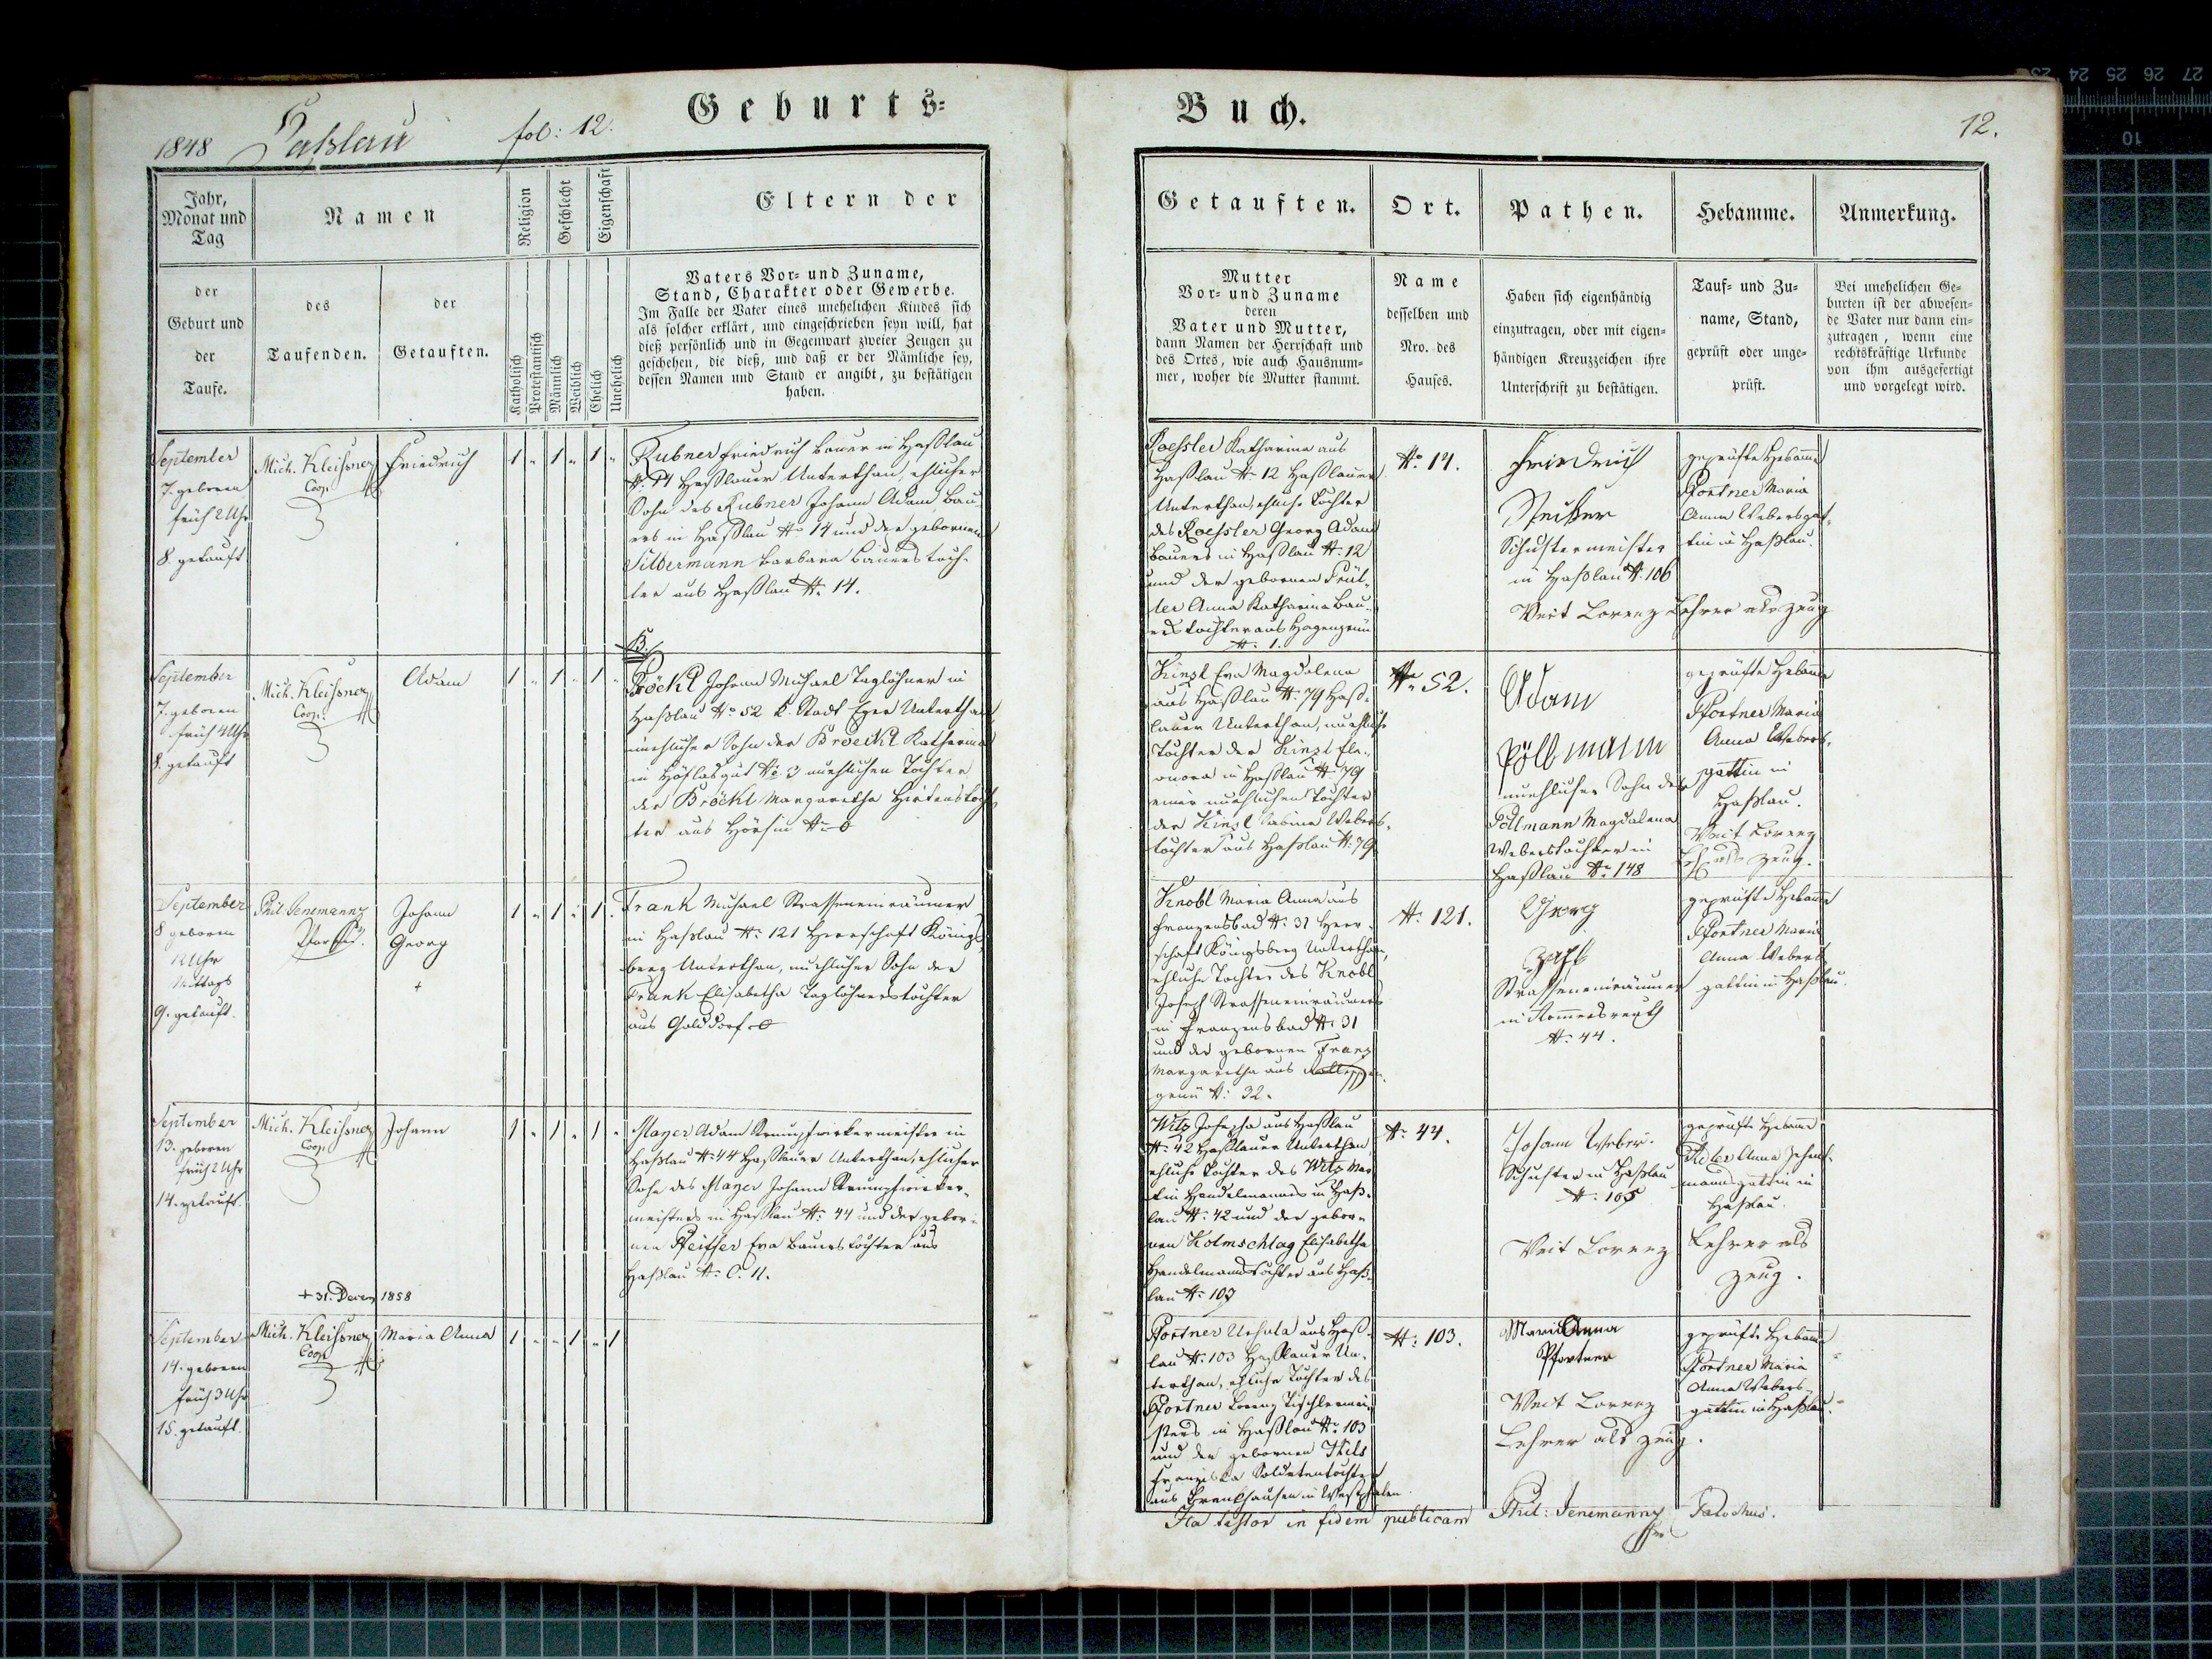 Geburts=
Buch.
1848 Haßlau fol: 12.
12.
Jahr,
Monat und
Tag
Namen
Religion
Geschlecht
Eigenschaft
Eltern der
der
Geburt und
der
Taufe.
des
Taufenden.
der
Getauften.
Katholisch
Protestantisch
Männlich
Weiblich
Ehelich
Unehelich
Vaters Vor= und Zuname,
Stand, Charakter oder Gewerbe.
Im Falle der Vater eines unehelichen Kindes sich
als solcher erklärt, und eingeschrieben seyn will, hat
dieß persönlich und in Gegenwart zweier Zeugen zu
geschehen, die dieß, und daß er der Nämliche sey,
dessen Namen und Stand er angibt, zu bestätigen
haben.
September
7. geboren
früh 2 Uhr
8. getauft
Mich. Kleißner
Coop.
Friedrich
1 " 1 " 1 "
Rubner Friedrich Bauer in Haßlau
N: 14 Haßlauer Unterthan, ehelicher
Sohn des Rubner Johann Adam Bau-
ers in Haßlau No 14 und der gebornen
Silbermann Barbara Bauerstoch-
ter aus Haßlau N: 14.
September
7. geboren
früh 4 Uhr
8. getauft
Mich. Kleißner
Coop.
Adam
1 " 1 " 1 "
Bröckl Johann Michael Taglöhner in
Haßlau No 52 k. Stadt Eger Unterthan
unehelicher Sohn der Broeckl Katharina
in Höflasgut No 3 unehelichen Tochter
der Bröckl Margaretha Hirtenstoch-
ter aus
September
8 geboren
12 Uhr
Mittags
9. getauft.
Phil. Jenemann
Pfarrer.
Johann
Georg
+
1 " 1 " 1 "
Frank Michael Strasseneinräumer
in Haßlau No: 121 Herrschaft Königs-
berg Unterthan, unehelicher Sohn der
Frank Elisabetha Taglöhnerstochter
aus
September
13. geboren
früh 2 Uhr
14. getauft.
Mich. Kleißner
Coop.
Johann
1 " 1 " 1 "
Mayer Adam Strumpfwirkermeister in
Haßlau No 44 Haßlauer Unterthan, ehelicher
Sohn des Mayer Johann Strumpfwirker-
meisters in Haßlau No: 44 und der gebor-
nen Pfeiffer Eva Bauerstochter aus
Haßlau No: 11.
+ 31. Decem 1858
September
14. geboren
früh 3 Uhr
15. getauft.
Mich. Kleißner
Coop.
Maria Anna
1 " " 1 " 1
Getauften.
Ort.
Pathen.
Hebamme.
Anmerkung.
Mutter
Vor= und Zuname
deren
Vater und Mutter,
dann Namen der Herrschaft und
des Ortes, wie auch Hausnum=
mer, woher die Mutter stammt.
Name
desselben und
Nro. des
Hauses.
Haben sich eigenhändig
einzutragen, oder mit eigen=
händigen Kreuzzeichen ihre
Unterschrift zu bestätigen.
Tauf= und Zu=
name, Stand,
geprüft oder unge=
prüft.
Bei unehelichen Ge=
burten ist der abwesen=
de Vater nur dann ein=
zutragen, wenn eine
rechtskräftige Urkunde
von ihm ausgefertigt
und vorgelegt wird.
Roessler Katharina aus
Haßlau No 12 Haßlauer
Unterthan, eheliche Tochter
des Roessler Georg Adam
Bauers in Haßlau No 12
und der gebornen
Anna Katharina Bau-
erstochter aus Hagengrün
No: 1.
No 14.
Friedrich
Schustermeister
in Haßlau No 106
Veit Lorenz Lehrer als Zeug
geprüfte Hebamme
Pfortner Maria
Anna Webersgat-
tin in Haßlau.
Kinzl Eva Magdalena
aus Haßlau No 79 Haß-
lauer Unterthan, uneheliche
Tochter der Kinzl Ele-
onora in Haßlau No 79
einer unehelichen Tochter
der Kinzl Sabina Webers-
tochter aus Haßlau No 79
No 52.
Adam
Pöllmann
unehlicher Sohn der
Pöllmann Magdalena
Weberstochter in
Haßlau No 148
geprüfte Hebamme
Pfortner Maria
Anna Webers-
gattin in
Haßlau.
Veit Lorenz
als Zeug.
Knobl Maria Anna aus
Franzensbad No 31 Herr-
schaft Königsberg Unterthan,
eheliche Tochter des Knobl
Joseph Strasseneinräumers
in Franzensbad No 31
und der gebornen Franz
Margaretha aus
grün No: 32.
No: 121.
Georg
Zapf
Strasseneinräumer
in Sommersreuth
No: 44.
geprüfte Hebamme
Pfortner Maria
Anna Webers-
gattin in Haßlau.
Witz Josepha aus Haßlau
No 42 Haßlauer Unterthan
eheliche Tochter des Witz Mar-
tin Handelmanns in Haß-
lau No: 42 und der gebor-
nen Kolmschlag Elisabetha
Handelmannstochter aus Haß-
lau No 107
No: 44.
Johann Weber.
Schuster in Haßlau
No: 105
Veit Lorenz Lehrer als
Zeug.
geprüfte Hebamme
Anna
mannsgattin in
Haßlau.
Pfortner Ursula aus Haß-
lau No: 103 Haßlauer Un-
terthan, eheliche Tochter des
Pfortner Lorenz Tischlermei-
sters in Haßlau No 103
und der gebornen Thils
Franziska Soldatentochter
aus in Westphalen.
No: 103.
Maria Anna
Pfortner
Veit Lorenz
Lehrer als Zeug.
geprüfte Hebamme
Pfortner Maria
Anna Webers-
gattin in Haßlau.
Ita testor in fidem publicam Phil: Jenemann Parochus.